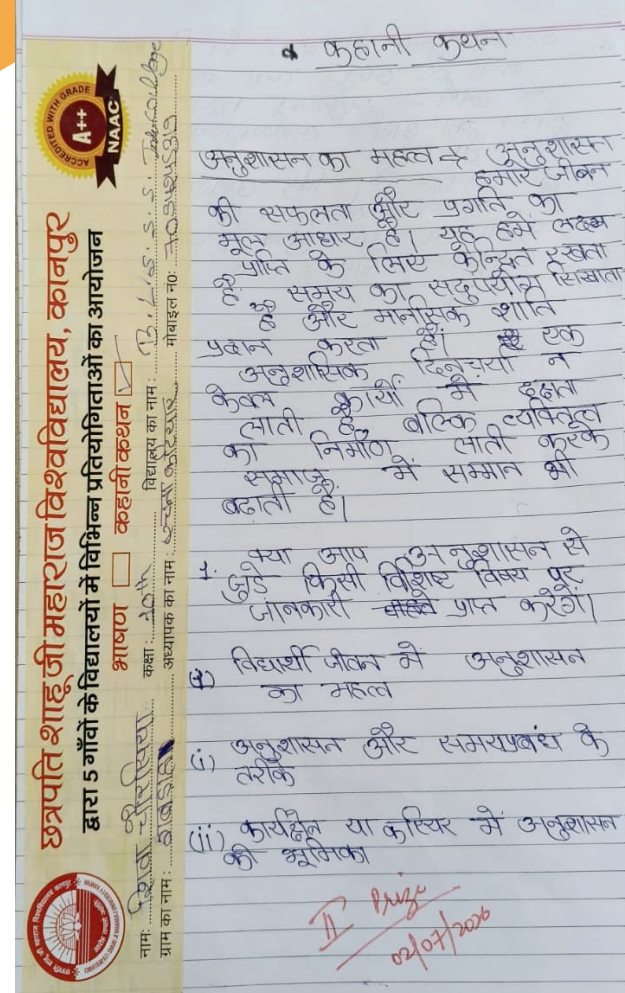 छत्रपति शाहू जी महाराज विश्वविद्यालय, कानपुर
द्वारा 5 गाँवों के विद्यालयों में विभिन्न प्रतियोगिताओं का आयोजन
भाषण कहानी कथन ✓
नाम: चौरसिया कक्षा: 10th विद्यालय का नाम: B.L.S.S.S. Inter College
ग्राम का नाम: अध्यापक का नाम: कटियार मोबाईल न0:
ACCREDITED WITH GRADE
A++
NAAC
कहानी कथन
अनुशासन का महत्व अनुशासन
हमारे जीवन
की सफलता और प्रगति का
मूल आधार है। यह हमें लक्ष्य
प्राप्ति के लिए केन्द्रित रखता
है समय का सदुपयोग सिखाता
है और मानसिक शांति
प्रदान करता है। एक
अनुशासिक दिनचर्या न
केवल कार्यों में दक्षता
लाती है बल्कि व्यक्तित्व
का निर्माण लाती करके
समाज में सम्मान भी
बढ़ाती है।
1. क्या आप अनुशासन से
जुड़े किसी विशिष्ट विषय पर
जानकारी प्राप्त करेगें।
विद्यार्थी जीवन में अनुशासन
का महत्व
(i) अनुशासन और समयप्रबंध के
तरीके
(ii) कार्यक्षेत्र या करियर में अनुशासन
की भूमिका
II Prize
02/07/2026